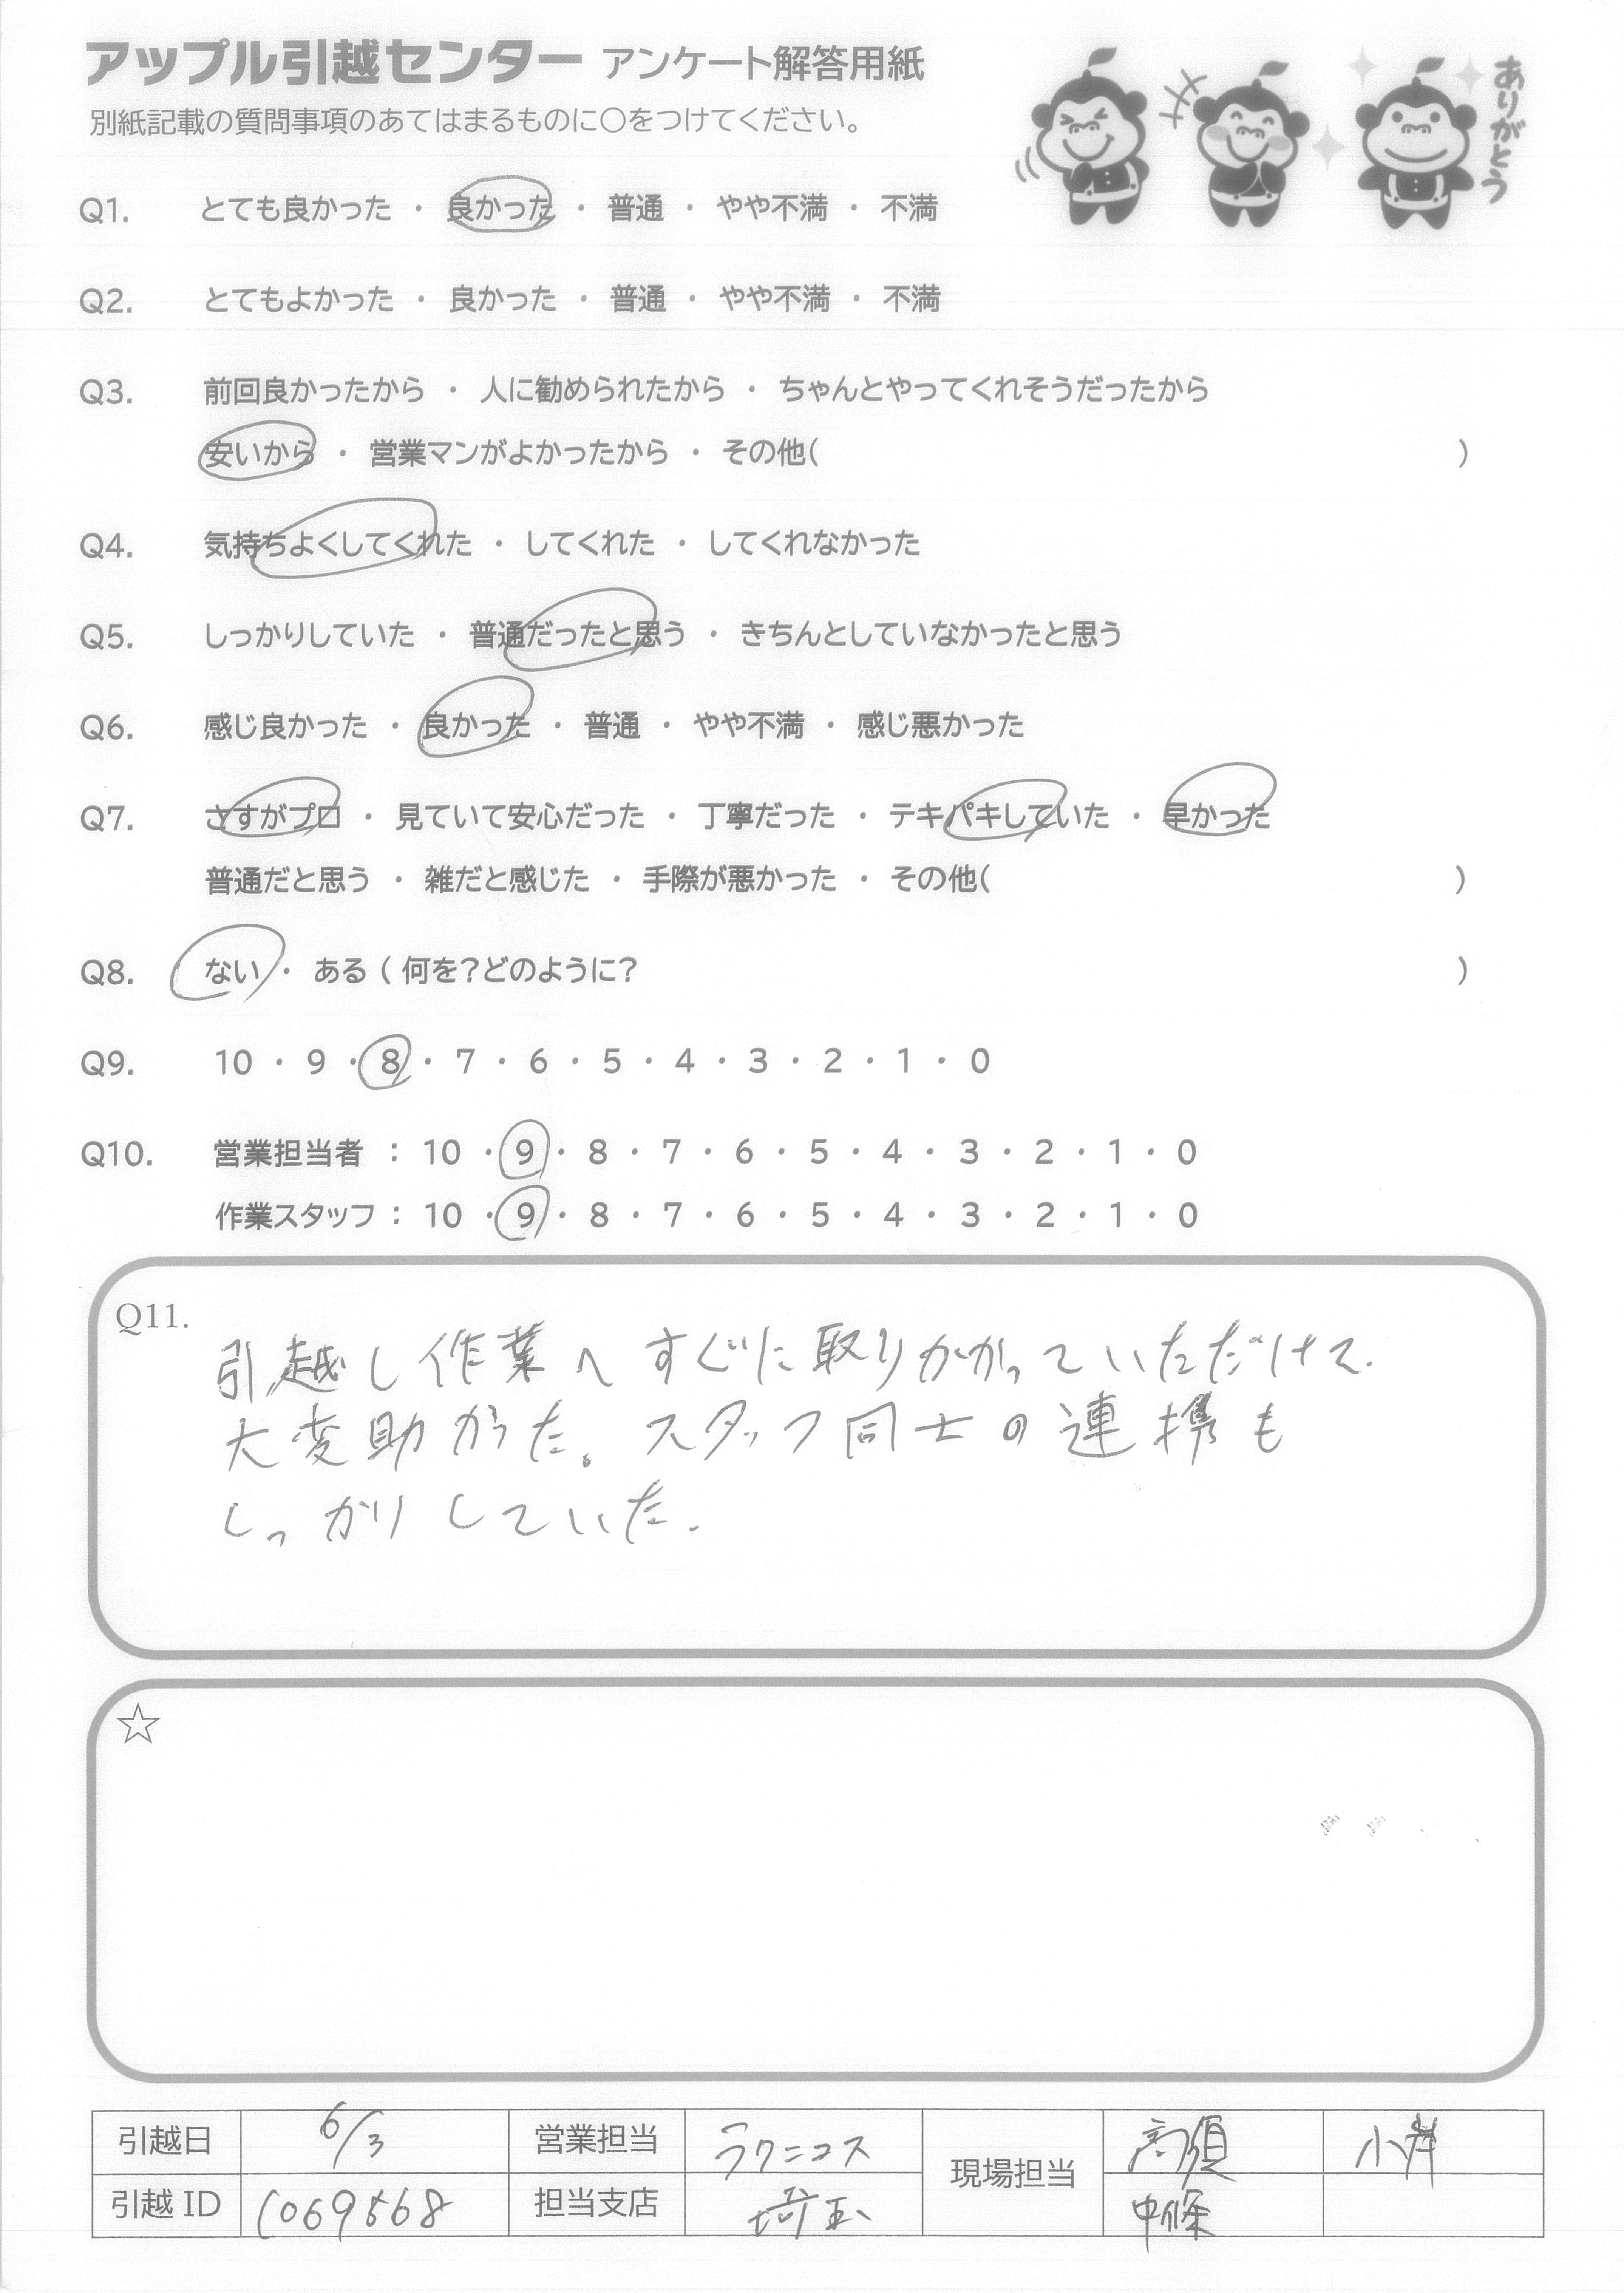 アップル引越センター アンケート解答用紙
別紙記載の質問事項のあてはまるものに○をつけてください。
ありがとう
Q1. とても良かった ・ 良かった ・ 普通 ・ やや不満 ・ 不満
Q2. とてもよかった ・ 良かった ・ 普通 ・ やや不満 ・ 不満
Q3. 前回良かったから ・ 人に勧められたから ・ ちゃんとやってくれそうだったから
安いから ・ 営業マンがよかったから ・ その他( )
Q4. 気持ちよくしてくれた ・ してくれた ・ してくれなかった
Q5. しっかりしていた ・ 普通だったと思う ・ きちんとしていなかったと思う
Q6. 感じ良かった ・ 良かった ・ 普通 ・ やや不満 ・ 感じ悪かった
Q7. さすがプロ ・ 見ていて安心だった ・ 丁寧だった ・ テキパキしていた ・ 早かった
普通だと思う ・ 雑だと感じた ・ 手際が悪かった ・ その他( )
Q8. ない ・ ある ( 何を?どのように? )
Q9. 10 ・ 9 ・ 8 ・ 7 ・ 6 ・ 5 ・ 4 ・ 3 ・ 2 ・ 1 ・ 0
Q10. 営業担当者 : 10 ・ 9 ・ 8 ・ 7 ・ 6 ・ 5 ・ 4 ・ 3 ・ 2 ・ 1 ・ 0
作業スタッフ : 10 ・ 9 ・ 8 ・ 7 ・ 6 ・ 5 ・ 4 ・ 3 ・ 2 ・ 1 ・ 0
Q11.
引越し作業へすぐに取りかかっていただけて.
大変助かった。スタッフ同士の連携も
しっかりしていた.
☆
引越日 6/3 営業担当 ラクニコス 現場担当 高須 小岸
引越 ID 1069568 担当支店 埼玉 中條